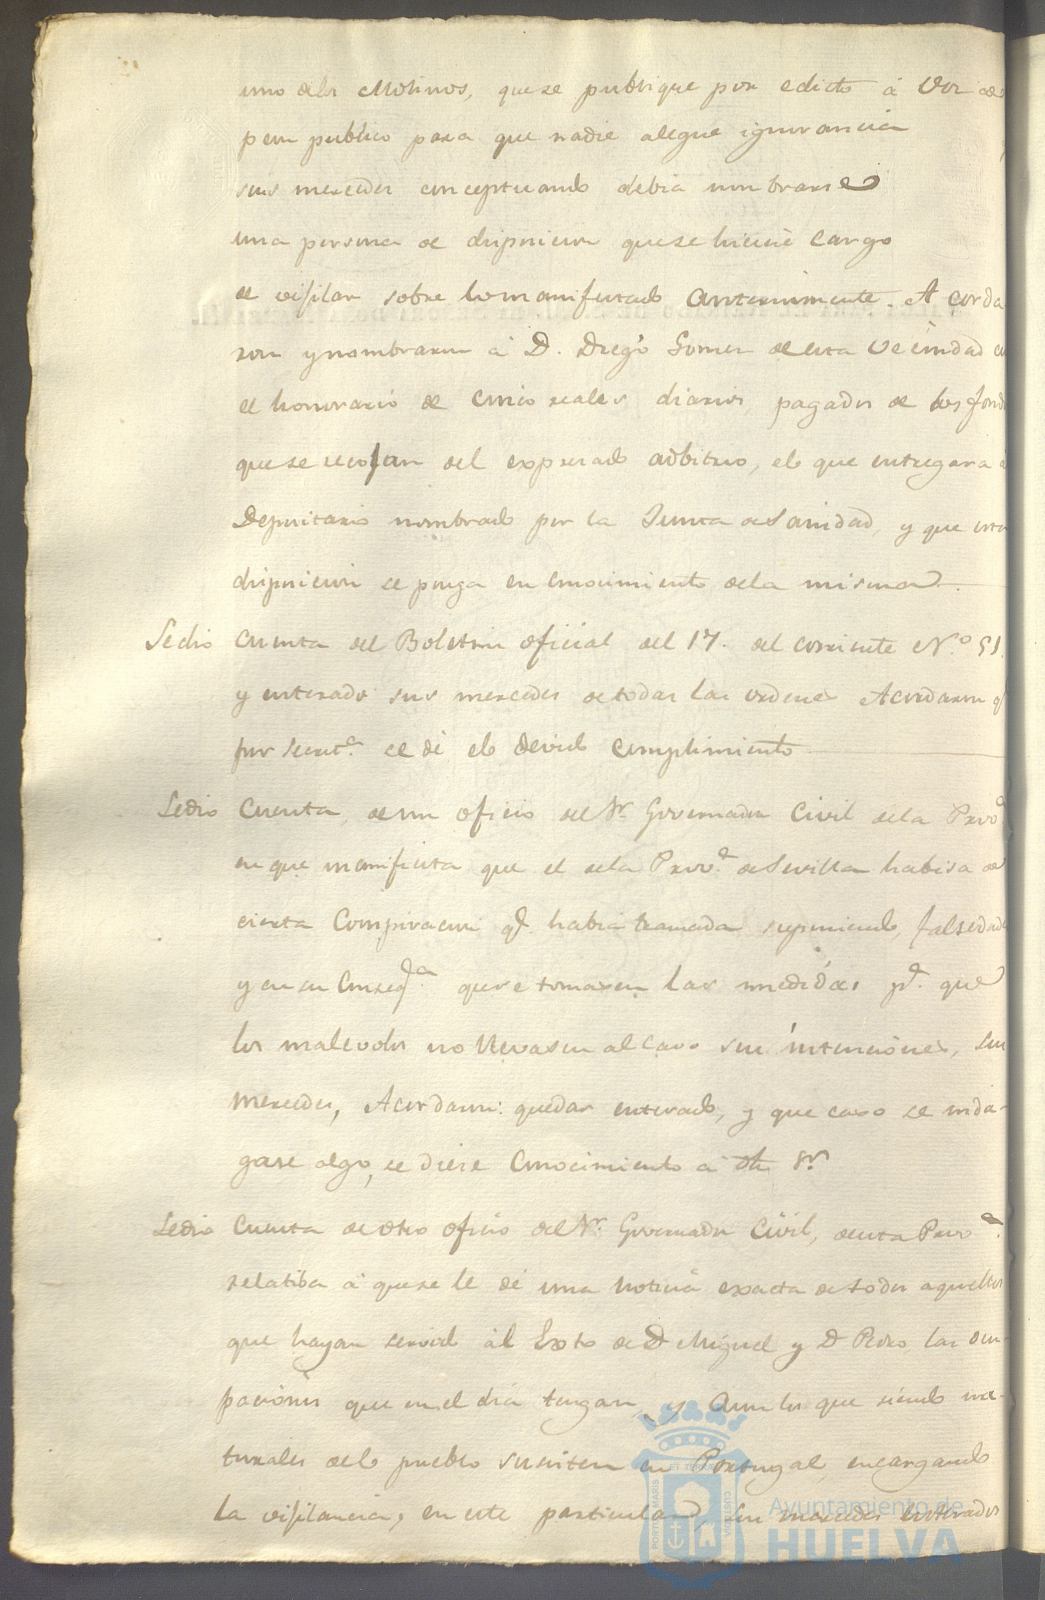 uno de los Molinos, que se publique por edicto á Voz de
peon publico para que nadie alegue ignorancia
sus mercedes conceptuando debia nombrarse
una persona de disposicion que se hiciese cargo
de vijilar sobre lo manifestado anteriormente. Acorda
ron y nombraron á D. Diego Gomez de esta Vecindad con
el honorario de cinco reales diarios pagados de los fond
que se recojan del expresado adbitrio, el que entregara á
Depositario nombrado por la Junta de Sanidad, y que esta
disposicion se ponga en conocimiento de la misma
Se dio cuenta del Boletin oficial del 17. del corriente N.º 51.
y enterados sus mercedes de todas las ordenes Acordaron q
por Secret.ª se dé el devido cumplimiento
Se dio Cuenta, de un oficio del Sr. Governador Civil de la Prov.ª
en que manifiesta que el de la Prov.ª de Sevilla habisa de
cierta Conspiracion q.e habia tramada suponiendo, falsedad
y en su Conseq.ª que se tomasen las medidas p.ª que
los malevolos no llevasen al cavo sus intenciones, sus
mercedes, Acordaron: quedar enterados, y que caso se inda-
gase algo, se diese Conocimiento á dho Sr.
Se dio Cuenta de otro oficio del Sr. Governador Civil, de esta Prov.ª
relatiba á que se le dé una noticia exacta de todos aquellos
que hayan servido al Exto de D Miguel y D Pedro, las ocu-
paciones que en el dia tengan, y Aun los que siendo na-
turales de el pueblo existen en Portugal encargando
la vijilancia, en este particular, sus mercedes enterados
Ayuntamiento de
HUELVA